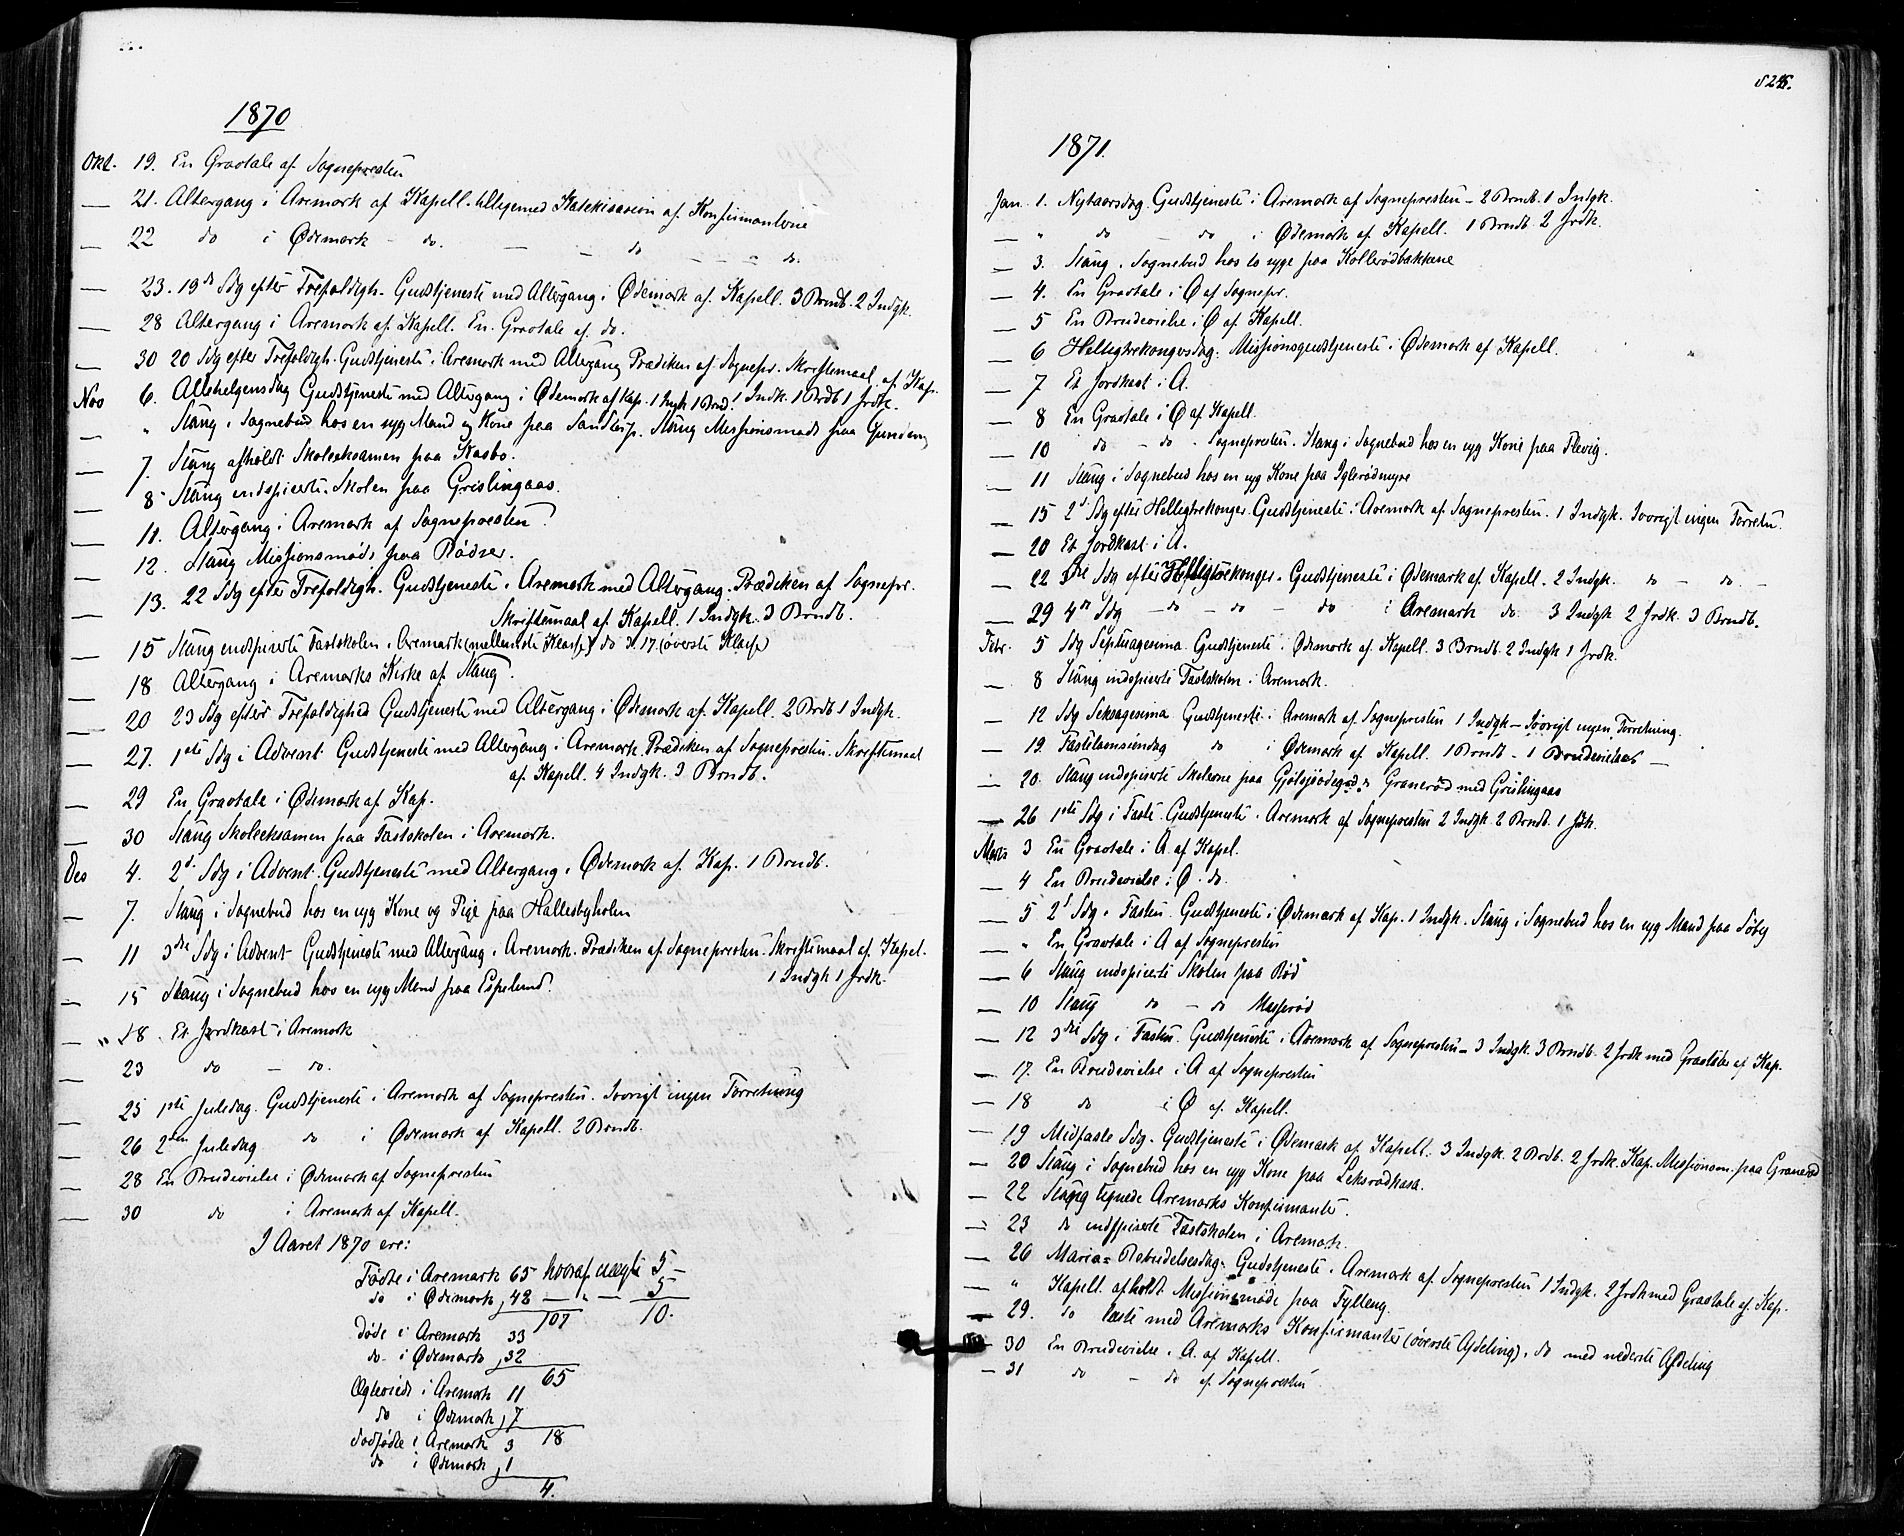 1870
Okt. 19. En Gravtale af Sognepresten
— 21. Altergang i Aremark af Kapell. tilligemed Katekisasion af Konfirmanterne
— 22 do i Ødemark - do. — — do — — — do.
— 23. 19de Sdg efter Trefoldigh. Gudstjeneste med Altergang i Ødemark af Kapell. 3 Brndb. 2 Indgk.
— 28 Altergang i Aremark af Kapell. En Gravtale af do.
— 30 20 Sdg efter Trefoldigh. Gudstjeneste i Aremark med Altergang Prædiken af Sognepr. Skriftemaal af Kap.
1 Indk. 1 Brdb 1 Jrdk.
Nov 6. Allehelgensdag Gudstjeneste med Altergang i Ødemark af Kap. 1 Ingk 1 Brnd.
— " Stang i Sognebud hos en syg Mand og Kone paa Sandtorp. Stang Missionsmøde paa
— 7. Stang afholdt Skoleeksamen paa Kasbo.
— 8 Stang indspiserte Skolen paa Grislingaas.
— 11. Altergang i Aremark af Sognepresten.
— 12. Stang Missionsmøde paa Bødser.
— 13. 22 Sdg efter Trefoldigh. Gudstjeneste i Aremark med Altergang. Prædiken af Sognepr.
Skriftemaal af Kapell. 1 Indgk. 3 Brndb.
— 15 Stang indspiserte Fastskolen i Aremark (mellemste Klasse) do d. 17. (øverste Klasse)
— 18 Altergang i Aremarks Kirke af Stang.
— 20 23 Sdg efter Trefoldighed Gudstjeneste med Altergang i Ødemark af Kapell. 2 Brdb 1 Indgk.
— 27. 1ste Sdg i Advent Gudstjeneste med Altergang i Aremark. Prædiken af Sognepresten. Skriftemaal
af Kapell. 4 Indgk. 3 Brndb.
— 29 En Gravtale i Ødemark af Kap.
— 30 Stang Skoleeksamen paa Fastskolen i Aremark.
Des 4. 2d. Sdg i Advent. Gudstjeneste med Altergang i Ødemark af Kap. 1 Brndb.
— 7. Stang i Sognebud hos en syg Kone og Pige paa Hallesbyholm
— 11 3die Sdg i Advent Gudstjeneste med Altergang i Aremark. Prædiken af Sognepresten. Skriftemaal af Kapel.
1 Indgk 1 Jrdk.
— 15 Stang i Sognebud hos en syg Mand paa Espelund.
— " 18. Et Jordkast i Aremark
— 23 do — do.
— 25 1ste Juledag. Gudstjeneste i Aremark af Sognepresten. Iøvrigt ingen Forretning
— 26 2den Juledag do i Ødemark af Kapell. 2 Brndb.
— 28 En Brudevielse i Ødemark af Sognepresten
— 30 do i Aremark af Kapell.
I Aaret 1870 ere:
Fødte i Aremark 65 hvoraf uægte 5 —
do i Ødemark 42 — " — 5
107 10.
Døde i Aremark 33
do - i Ødemark 32
65
Ægteviede i Aremark 11
do i Ødemark 7
18
Dødfødte i Aremark 3
do i Ødemark 1
4.
1871.
Jan. 1. Nytaarsdag. Gudstjeneste i Aremark af Sognepresten - 2 Brndb. 1 Indgk.
— " do — do i Ødemark af Kapell. 1 Brndb 2 Jrdk.
— 3. Stang i Sognebud hos to syge paa Kollerødbakkene
— 4. En Gravtale i Ø af Sognepr.
— 5 En Brudevielse i Ø af Kapell.
— 6 Helligtrekongersdag. Missionsgudstjeneste i Ødemark af Kapell.
— 7 Et Jordkast i A.
— 8 En Gravtale i Ø af Kapell.
— 10 do - do - Sognepresten. Stang i Sognebud hos en syg Kone paa Flevig.
— 11 Stang i Sognebud hos en syg Kone paa Iglerødmyre
— 15 2d. Sdg efter Helligtrekonger. Gudstjeneste i Aremark af Sognepresten. 1 Indgk. Iøvrigt ingen Forretn.
— 20 Et Jordkast i A.
— 22 3die Sdg efter Helligtrekonger. Gudstjeneste i Ødemark af Kapell. 2 Indgk. do — do. —
— 29 4de Sdg — do — do — do i Aremark do. 3 Indgk 2 Jrdk. 3 Brndb.
Febr. 5 Sdg Septuagesima Gudstjeneste i Ødemark af Kapell. 3 Brndb. 2 Indgk 1 Jrdk.
— 8 Stang indspiserte Fastskolen i Aremark.
— 12 Sdg Seksagesima Gudstjeneste i Aremark af Sognepresten 1 Indgk — Iøvrigt ingen Forretning.
— 19. Fastelavnsøndag do i Ødemark af Kapell. 1 Brndb - 1 Brudevielse —
— 20. Stang indspiserte Skolerne paa Gjølsjødegrd. & Granerød med Grislingaas
— 26 1ste Sdg i Faste Gudstjeneste i Aremark af Sognepresten 2 Indgk. 2 Brndb. 1 Jrdk.
Marts 3 En Gravtale i A af Kapel.
— 4 En Brudevielse i Ø. do.
— 5 2d Sdg i Fasten. Gudstjeneste i Ødemark af Kap. 1 Indgk. Stang i Sognebud hos en syg Mand paa Søby
— " En Gravtale i A af Sognepresten
— 6 Stang indspiserte Skolen paa Bød
— 10 Stang do — do Musserød
— 12 3die Sdg i Fasten. Gudstjeneste i Aremark af Sognepresten — 3 Indgk. 3 Brndb. 2 Jrdk med Gravtaler af Kap.
— 17. En Brudevielse i A af Sognepresten
— 18 do i Ø af Kapell.
— 19 Midfaste Sdg. Gudstjeneste i Ødemark af Kapell. 3 Indgk. 2 Brdb. 2 Jrdk. Kap. Missionsm. paa Granerød
— 20 Stang i Sognebud hos en syg Kone paa Leksrødkasa.
— 22 Stang tegnede Aremarks Konfirmanter.
— 23 do indspiserte Fastskolen i Aremark.
— 26 Maria-Bebudelsesdag. Gudstjeneste i Aremark af Sognepresten 1 Indgk. 2 Jrdk med Gravtale af Kap.
" Kapell. afholdt Missionsmøde paa Fylleng.
— 29. do læste med Aremarks Konfirmanter (øverste Afdeling). do med nederste Afdeling
— 30 En Brudevielse i A. af Kapell.
— 31 do — do af Sognepresten